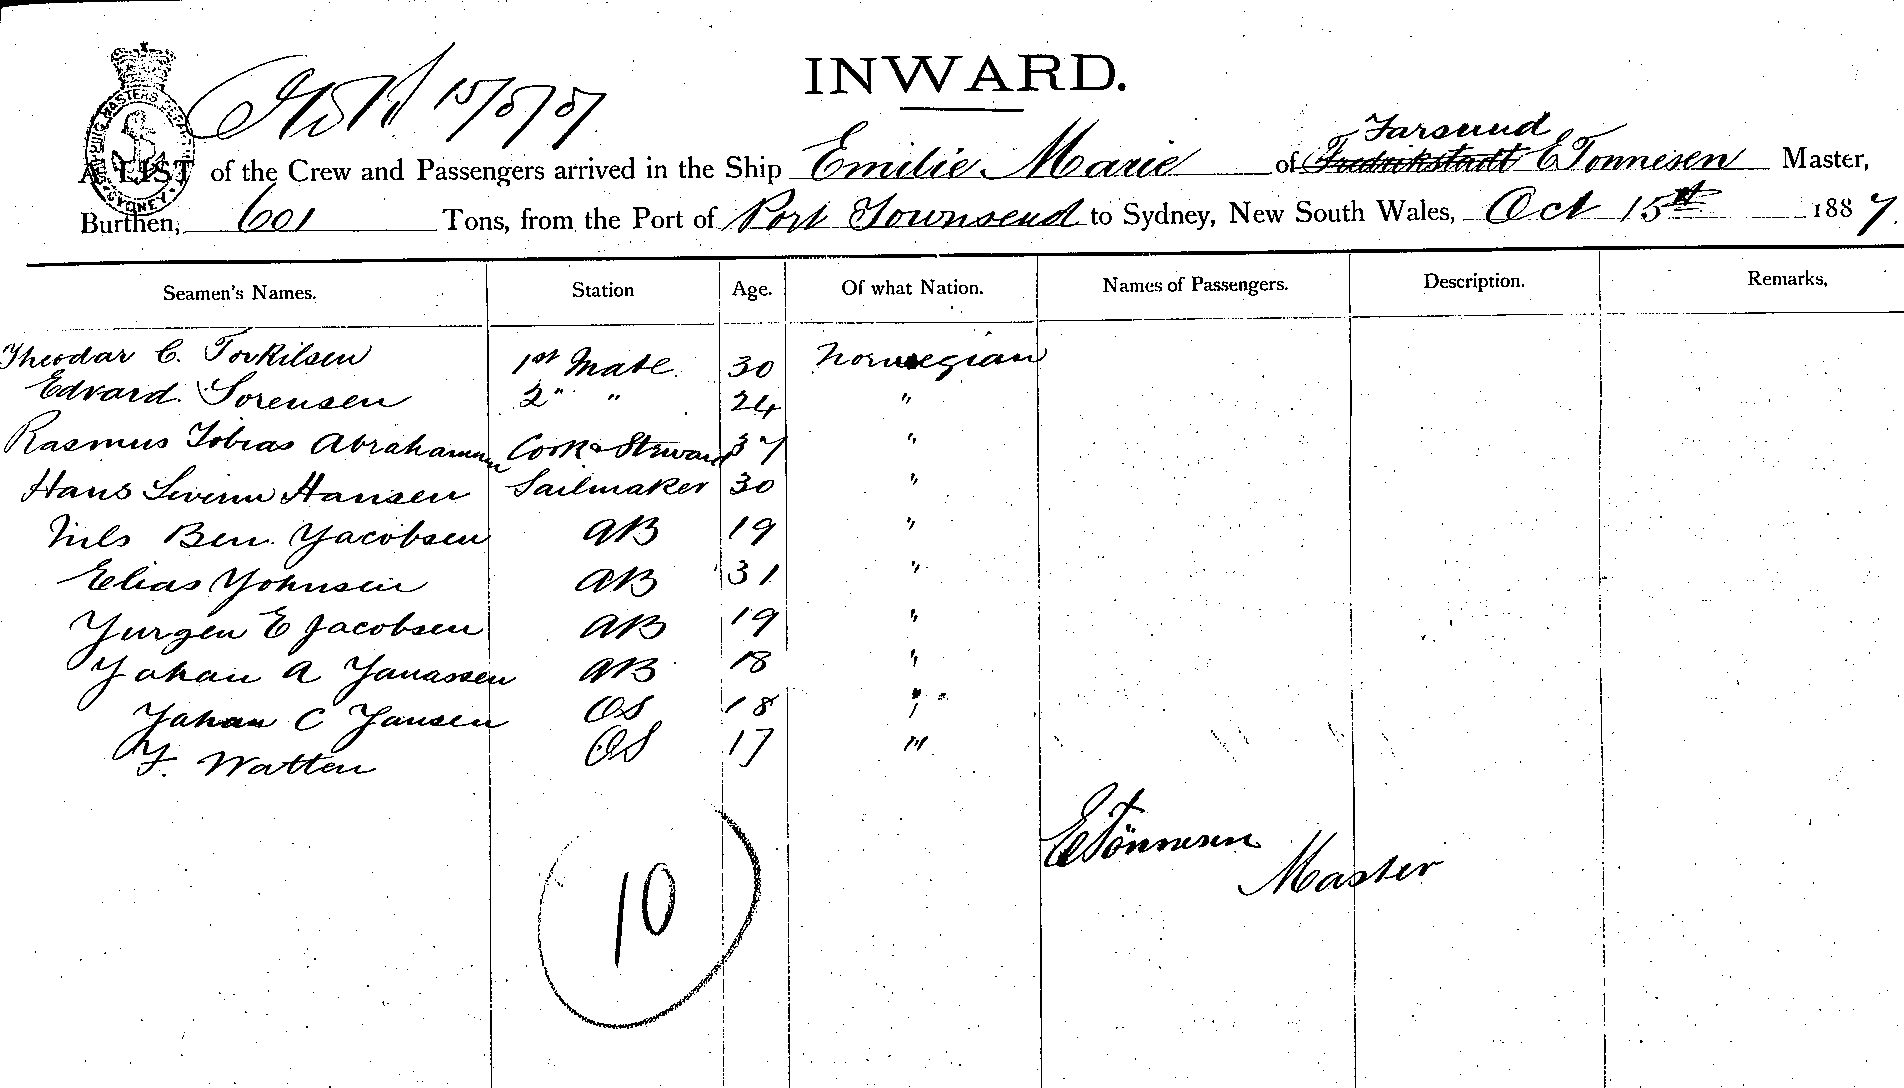 INWARD.
SHIPPING MASTERS OFFICE
SYDNEY
Farsund
A LIST of the Crew and Passengers arrived in the Ship Emilie Marie of Fredrikstadt E Tonnesen Master,
Burthen, 601 Tons, from the Port of Port Townsend to Sydney, New South Wales, Oct 15th 1887.
Seamen's Names. Station Age. Of what Nation. Names of Passengers. Description. Remarks,
Theodar C. Torkilsen 1st Mate. 30 Norwegian
Edvard Sorensen 2" " 24 "
Rasmus Tobias Abrahamsen Cook & Steward 37 "
Hans Hansen Sailmaker 30 "
Nils Ben. Yacobsen AB 19 "
Elias Yohnsen AB 31 "
Yurgen E Jacobsen AB 19 "
Yohan A Yanassen AB 18 "
Yahan C Yansen OS 18 "
F. Watten OS 17 "
E Tönnesen
Master
10